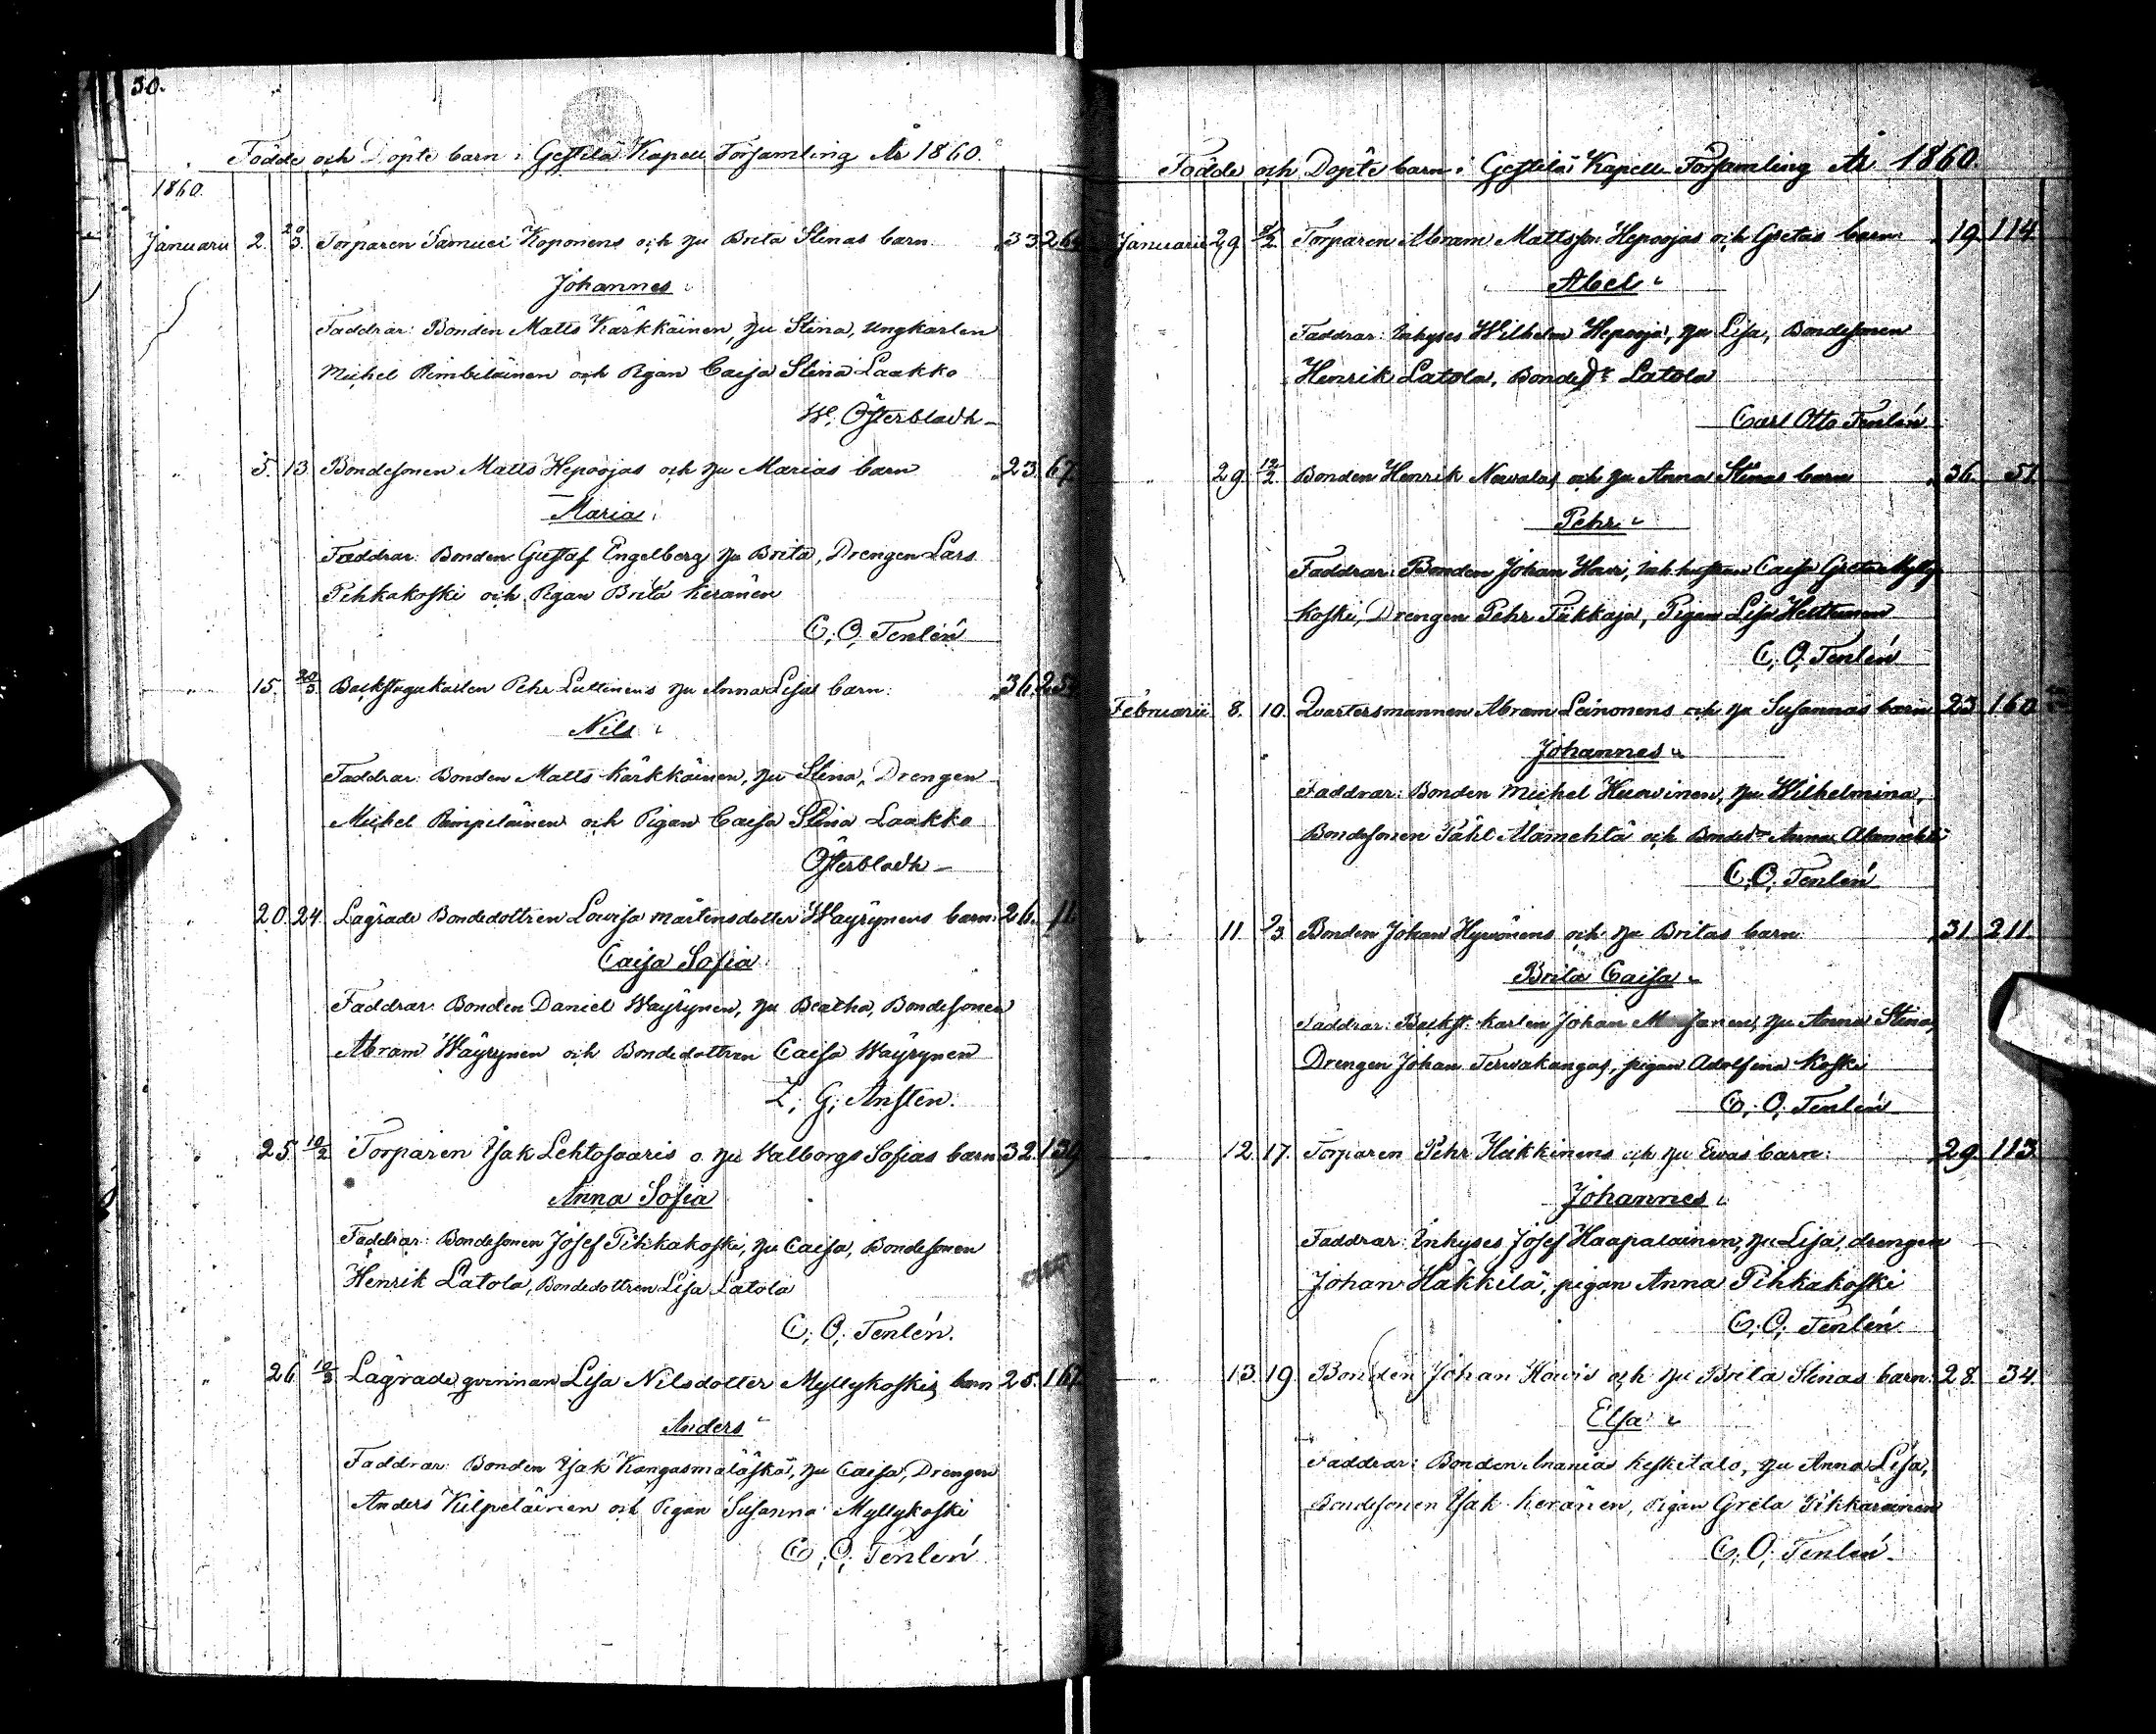 30.
Födde och Döpte barn i Gestilä Kapell Församling År 1860.
1860.
Januarii 2. 20/3. Torparen Samuel Koponens och hu Brita Stinas barn 33 264
Johannes
Faddrar: Bonden Matts Kärkkäinen, hu Stina, ungkarlen
Michel Rimbiläinen och Pigan Caisa Stina Laakko
W. Österbladh
" 5. 13 Bondesonen Matts Hepoojas och hu Marias barn 23. 67.
Maria
Faddrar: Bonden Gustaf Engelberg hu Brita, Drengen Lars
Pihkakoski och Pigan Brita Keränen
C. O. Tenlén
" 15. 20/3 Backstugukarlen Pehr Luttinens hu Anna Lisas barn: 36. 252
Nils
Faddrar: Bonden Matts Kärkkäinen, hu Stina, Drengen
Michel Rimpiläinen och Pigan Caisa Stina Laakko
Österbladh
" 20. 24. Lägrade Bondedottren Lovisa Mårtensdotter Wäyrynens barn: 26. 11
Caisa Sofia
Faddrar: Bonden Daniel Wäyrynen, hu Beatha, Bondesonen
Abram Wäyrynen och Bondedottren Caisa Wäyrynen
Z. G. Ansten.
" 25. 12/2 Torparen Isak Lehtosaaris o. hu Valborgs Sofias barn 32. 139
Anna Sofia
Faddrar: Bondesonen Josef Pihkakoski, hu Caisa, Bondesonen
Henrik Latola, Bondedottren Lisa Latola
C. O. Tenlén.
" 26 12/3 Lägrade qvinnan Lisa Nilsdotter Myllykoskis barn 28. 167
Anders
Faddrar: Bonden Isak Kangasmäläskä, hu Caisa, Drengen
Anders Kilpeläinen och Pigan Susanna Myllykoski
C. O. Tenlén
Födde och Döpte barn i Gestilä Kapell Församling År 1860.
Januarii 29 /2 Torparen Abram Mattsson Hepoojas och Gretas barn 19. 114.
Abel
Faddrar: Inhyses Wilhelm Hepooja, hu Lisa, Bondesonen
Henrik Latola, Bondedr Latola
Carl Otto Tenlén
" 29. 12/2 Bonden Henrik Navalas och hu Anna Stinas barn 36. 51.
Pehr
Faddrar: Bonden Johan Howi, Inh. hustrun Caisa Greta Mylly
koski, Drengen Pehr Tikkaja, Pigan Lisa Heittunen
C. O. Tenlén
Februarii 8. 10. Qvartersmannen Abram Leinonens och hu Susannas barn 23 160
Johannes
Faddrar: Bonden Michel Huovinen, hu Wilhelmina,
Bondesonen Påhl Alamehtä och Bondedr Anna Alamehtä
C. O. Tenlén
" 11. 2/3. Bonden Johan Hyvönens och hu Britas barn 31. 211.
Brita Caisa
Faddrar: Backst. karlen Johan hu Anna Stina,
Drengen Johan Tervakangas, pigan Adolfina Koski
C. O. Tenlén
" 12. 17. Torparen Pehr Hukkinens och hu Evas barn: 29. 113
Johannes
Faddrar: Inhyses Josef Haapalainen, hu Lisa, drengen
Johan Häkkilä, pigan Anna Pihkakoski
C. O. Tenlén
" 13. 19. Bonden Johan Howis och hu Brita Stinas barn: 28. 34.
Elsa
Faddrar: Bonden Anania Keskitalo, hu Anna Lisa,
Bondesonen Isak Keränen, Pigan Greta Pikkarainen
C. O. Tenlén